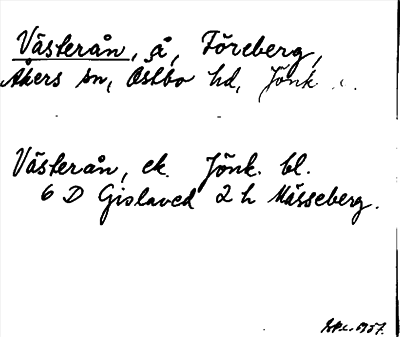 Västerån, å, Föreberg,
Åkers sn, Östbo hd, Jönk.
Västerån, ek. Jönk. bl.
6 D Gislaved 2 h Mässeberg.
1957.